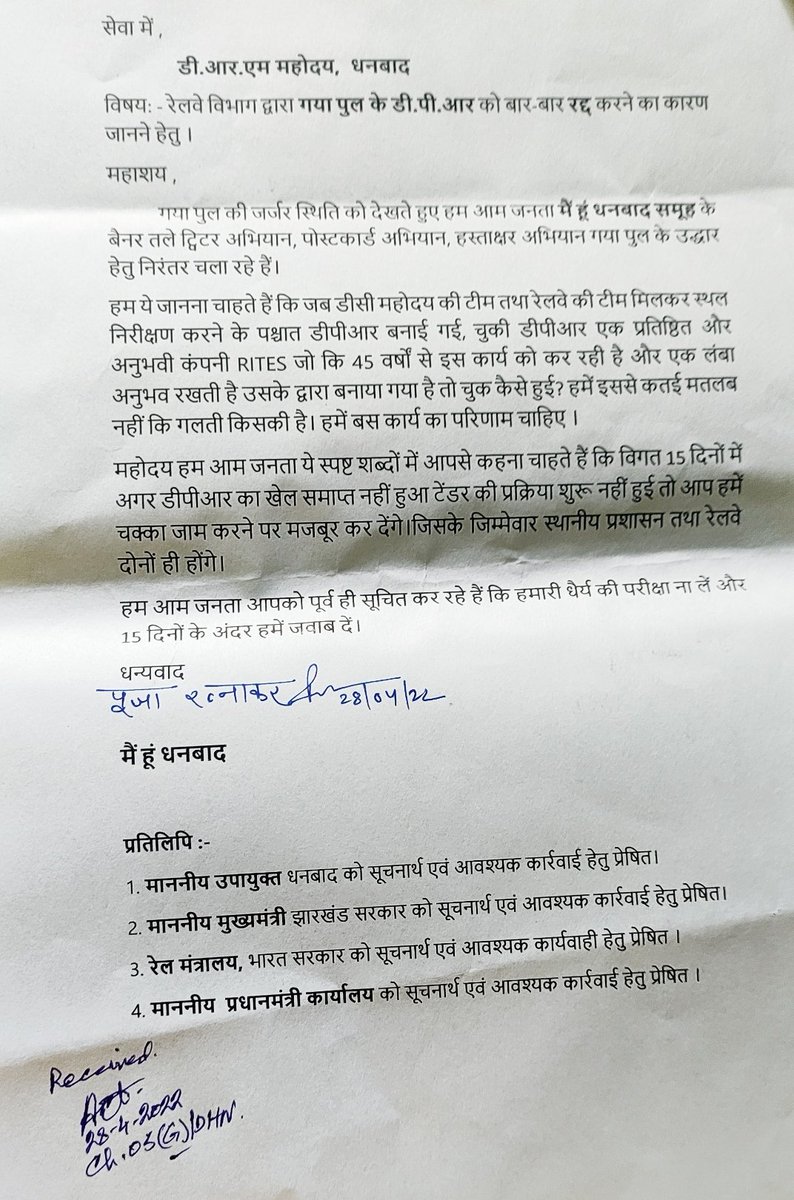 सेवा में ,
डी.आर.एम महोदय, धनबाद
विषय: - रेलवे विभाग द्वारा गया पुल के डी.पी.आर को बार-बार रद्द करने का कारण
जानने हेतु ।
महाशय ,
गया पुल की जर्जर स्थिति को देखते हुए हम आम जनता मैं हूं धनबाद समूह के
बैनर तले ट्विटर अभियान, पोस्टकार्ड अभियान, हस्ताक्षर अभियान गया पुल के उद्धार
हेतु निरंतर चला रहे हैं।
हम ये जानना चाहते हैं कि जब डीसी महोदय की टीम तथा रेलवे की टीम मिलकर स्थल
निरीक्षण करने के पश्चात डीपीआर बनाई गई, चुकी डीपीआर एक प्रतिष्ठित और
अनुभवी कंपनी RITES जो कि 45 वर्षों से इस कार्य को कर रही है और एक लंबा
अनुभव रखती है उसके द्वारा बनाया गया है तो चुक कैसे हुई? हमें इससे कतई मतलब
नहीं कि गलती किसकी है। हमें बस कार्य का परिणाम चाहिए ।
महोदय हम आम जनता ये स्पष्ट शब्दों में आपसे कहना चाहते हैं कि विगत 15 दिनों में
अगर डीपीआर का खेल समाप्त नहीं हुआ टेंडर की प्रक्रिया शुरू नहीं हुई तो आप हमें
चक्का जाम करने पर मजबूर कर देंगे।जिसके जिम्मेवार स्थानीय प्रशासन तथा रेलवे
दोनों ही होंगे।
हम आम जनता आपको पूर्व ही सूचित कर रहे हैं कि हमारी धैर्य की परीक्षा ना लें और
15 दिनों के अंदर हमें जवाब दें।
धन्यवाद
पूजा रत्नाकर 28/04/22
मैं हूं धनबाद
प्रतिलिपि :-
1. माननीय उपायुक्त धनबाद को सूचनार्थ एवं आवश्यक कार्रवाई हेतु प्रेषित।
2. माननीय मुख्यमंत्री झारखंड सरकार को सूचनार्थ एवं आवश्यक कार्रवाई हेतु प्रेषित।
3. रेल मंत्रालय, भारत सरकार को सूचनार्थ एवं आवश्यक कार्यवाही हेतु प्रेषित ।
4. माननीय प्रधानमंत्री कार्यालय को सूचनार्थ एवं आवश्यक कार्रवाई हेतु प्रेषित ।
Received.
28-4-2022
Ch.OS(G)/DHN.